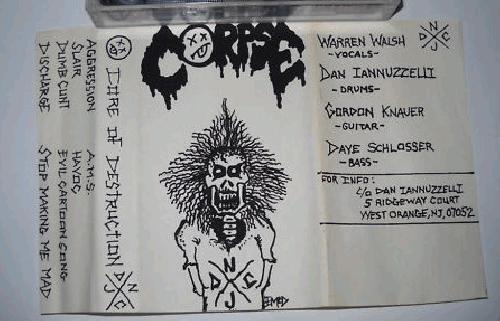 CORPSE
N
D C
J
OF DESTRUCTION
N
D C
J
AGGRESSION
SLAIR
DUMB CUNT
DISCHARGE
A.M.S.
HAVOC
EVIL CARTOON SONG
STOP MAKING ME MAD
WARREN WALSH
-VOCALS-
DAN IANNUZZELLI
-DRUMS-
GORDON KNAUER
-GUITAR-
DAVE SCHLOSSER
-BASS-
N
D C
J
FOR INFO:
C/O DAN IANNUZZELLI
5 RIDGEWAY COURT
WEST ORANGE, NJ, 07052